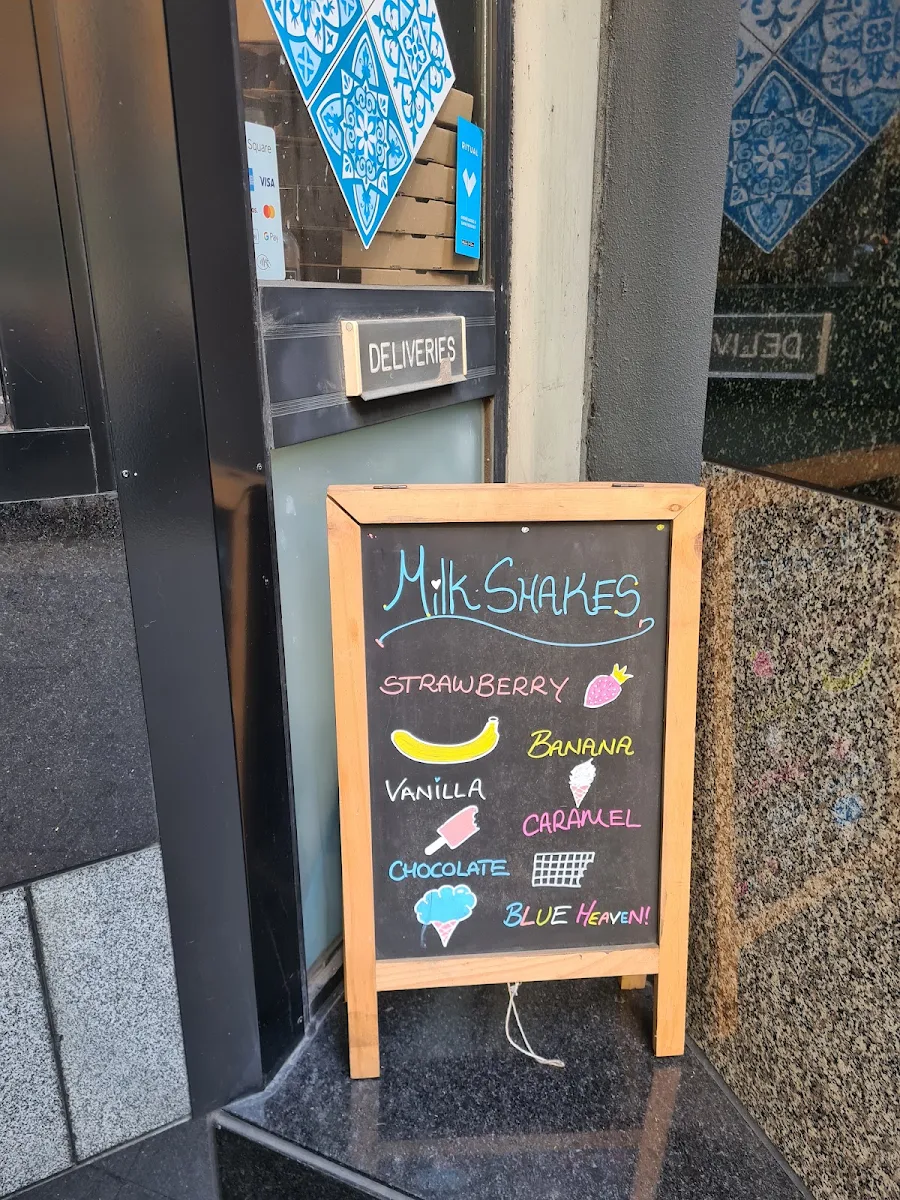 Square
VISA
G Pay
RITUAL
DELIVERIES
DELIV
Milk-SHAKES
STRAWBERRY
BANANA
VANiLLA
CARAMEL
CHOCOLATE
BLUE HEAVEN!